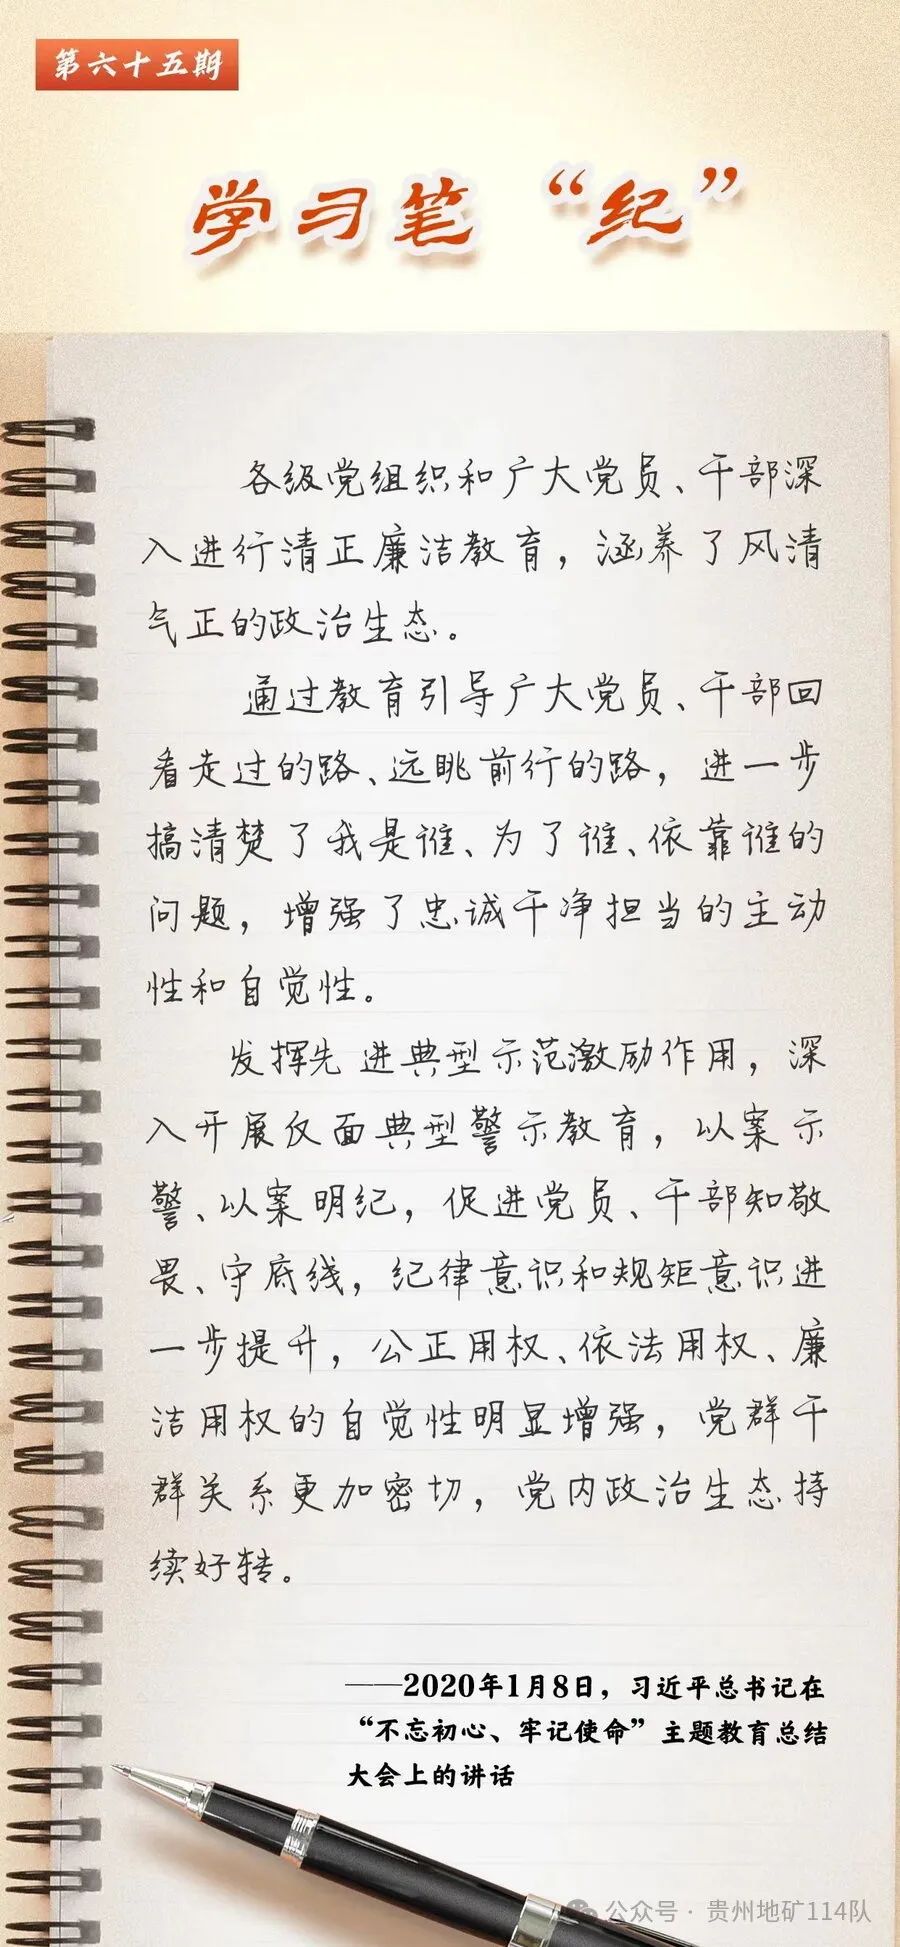 第六十五期
学习笔“纪”
各级党组织和广大党员、干部深
入进行清正廉洁教育，涵养了风清
气正的政治生态。
通过教育引导广大党员、干部回
看走过的路、远眺前行的路，进一步
搞清楚了我是谁、为了谁、依靠谁的
问题，增强了忠诚干净担当的主动
性和自觉性。
发挥先进典型示范激励作用，深
入开展反面典型警示教育，以案示
警、以案明纪，促进党员、干部知敬
畏、守底线，纪律意识和规矩意识进
一步提升，公正用权、依法用权、廉
洁用权的自觉性明显增强，党群干
群关系更加密切，党内政治生态持
续好转。
——2020年1月8日，习近平总书记在
“不忘初心、牢记使命”主题教育总结
大会上的讲话
公众号·贵州地矿114队